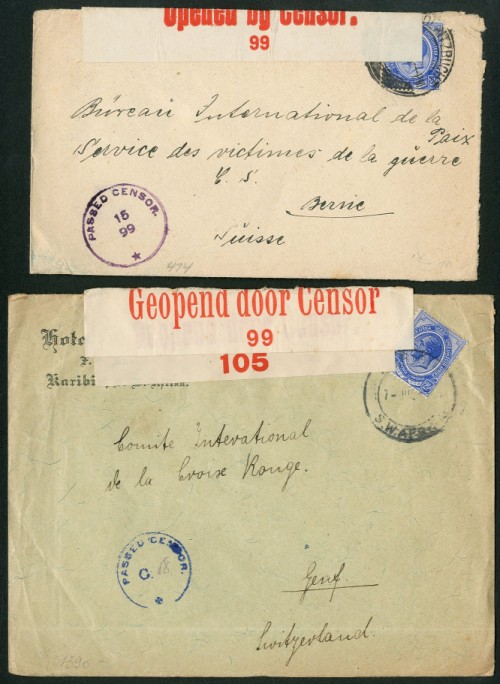 Opened by Censor.
99
Büreau International de la Paix
Service des victimes de la guerre
C. S.
Berne
Suisse
PASSED CENSOR.
15
99
494
Geopend door Censor
99
105
Hote
Karibi
S.W.AFR
Comite Intevational
de la Croix Rouge.
PASSED CENSOR.
C. 18.
Genf.
Switzerland.
1390